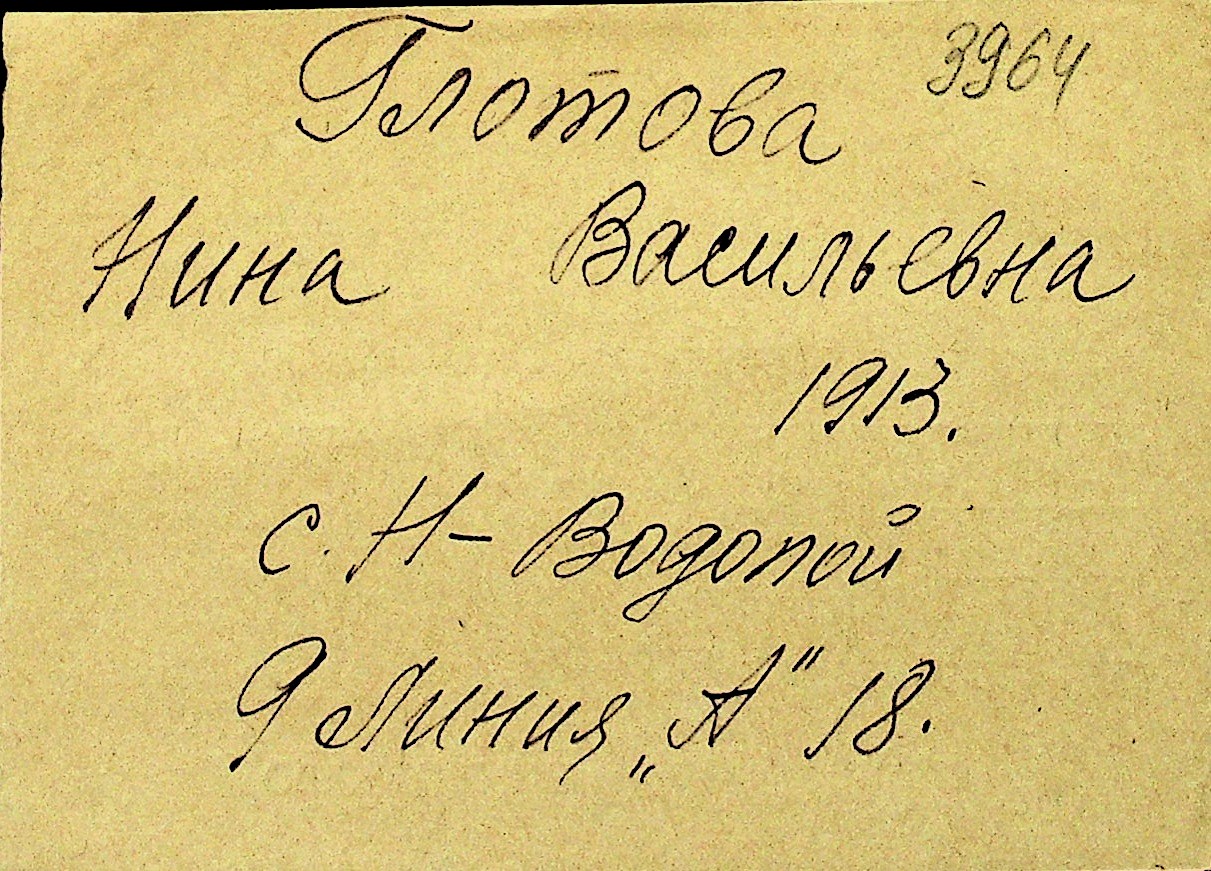 3964
Глотова
Нина Васильевна
1913.
с. Н-Водопой
9 Линия „А" 18.